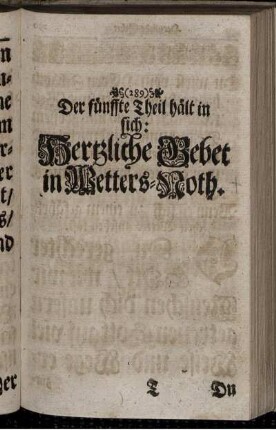 (289)
Der fünffte Theil hält in
sich:
Hertzliche Gebet
in Wetters-Noth.
T Du